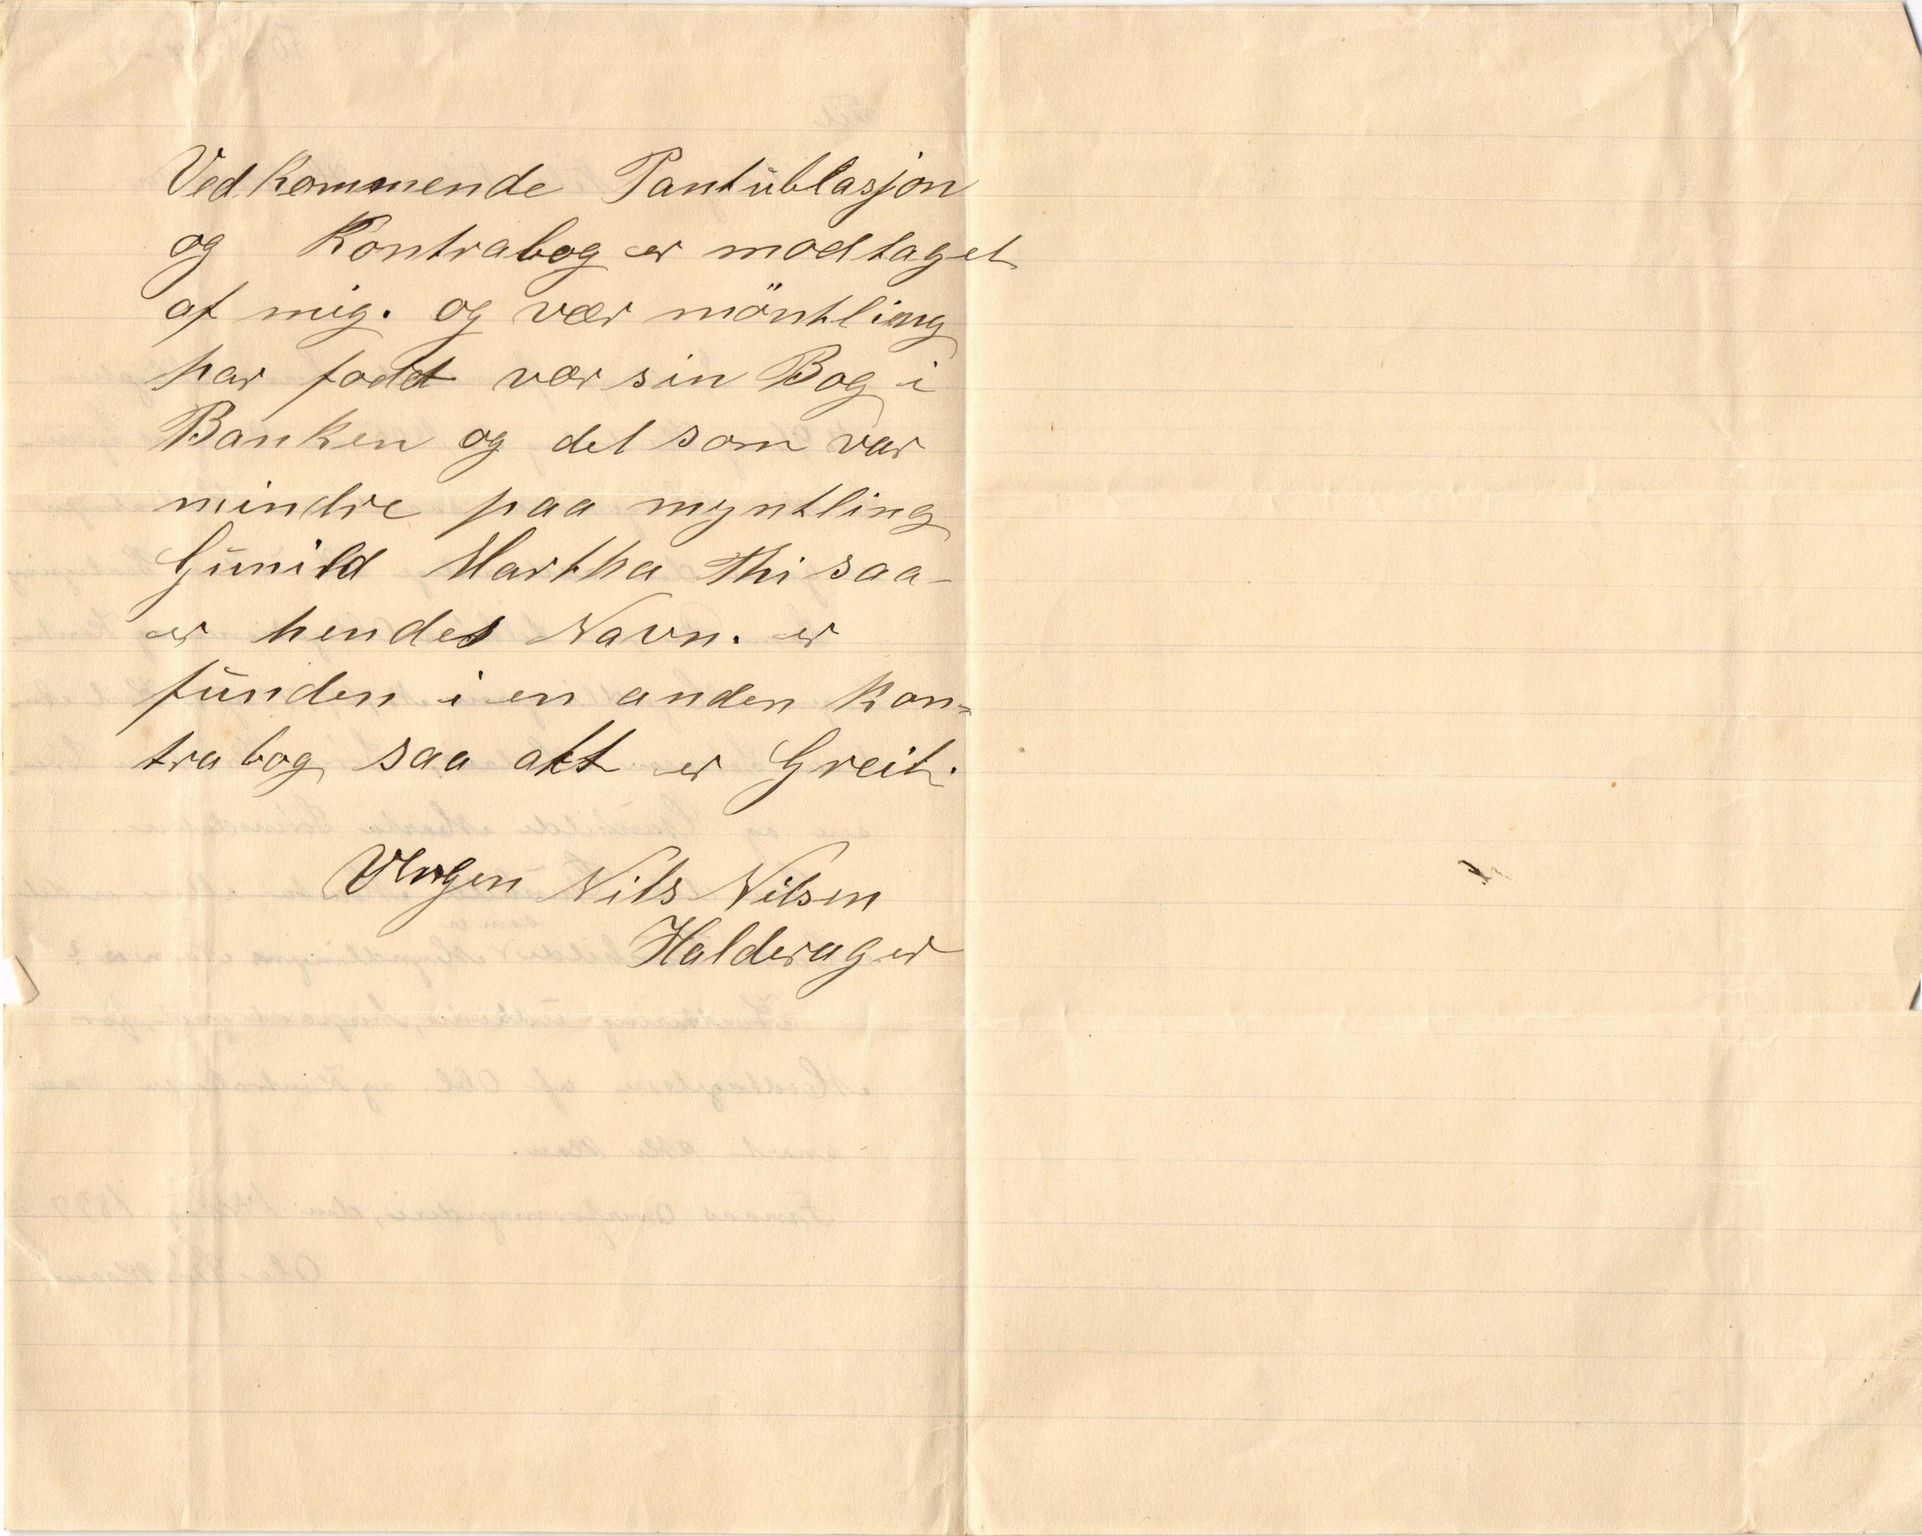 Vedkommende Pantublasjon
og Kontrabog er modtaget
af mig. og vær möntling
har fodt vær sin Bog i
Banken og det som var
mindre paa myntling
Gunild Martha Thi saa
er hendes Navn. er
funden i en anden Kon=
trabog saa att er Greit.
Nils Nilsen
Halderager